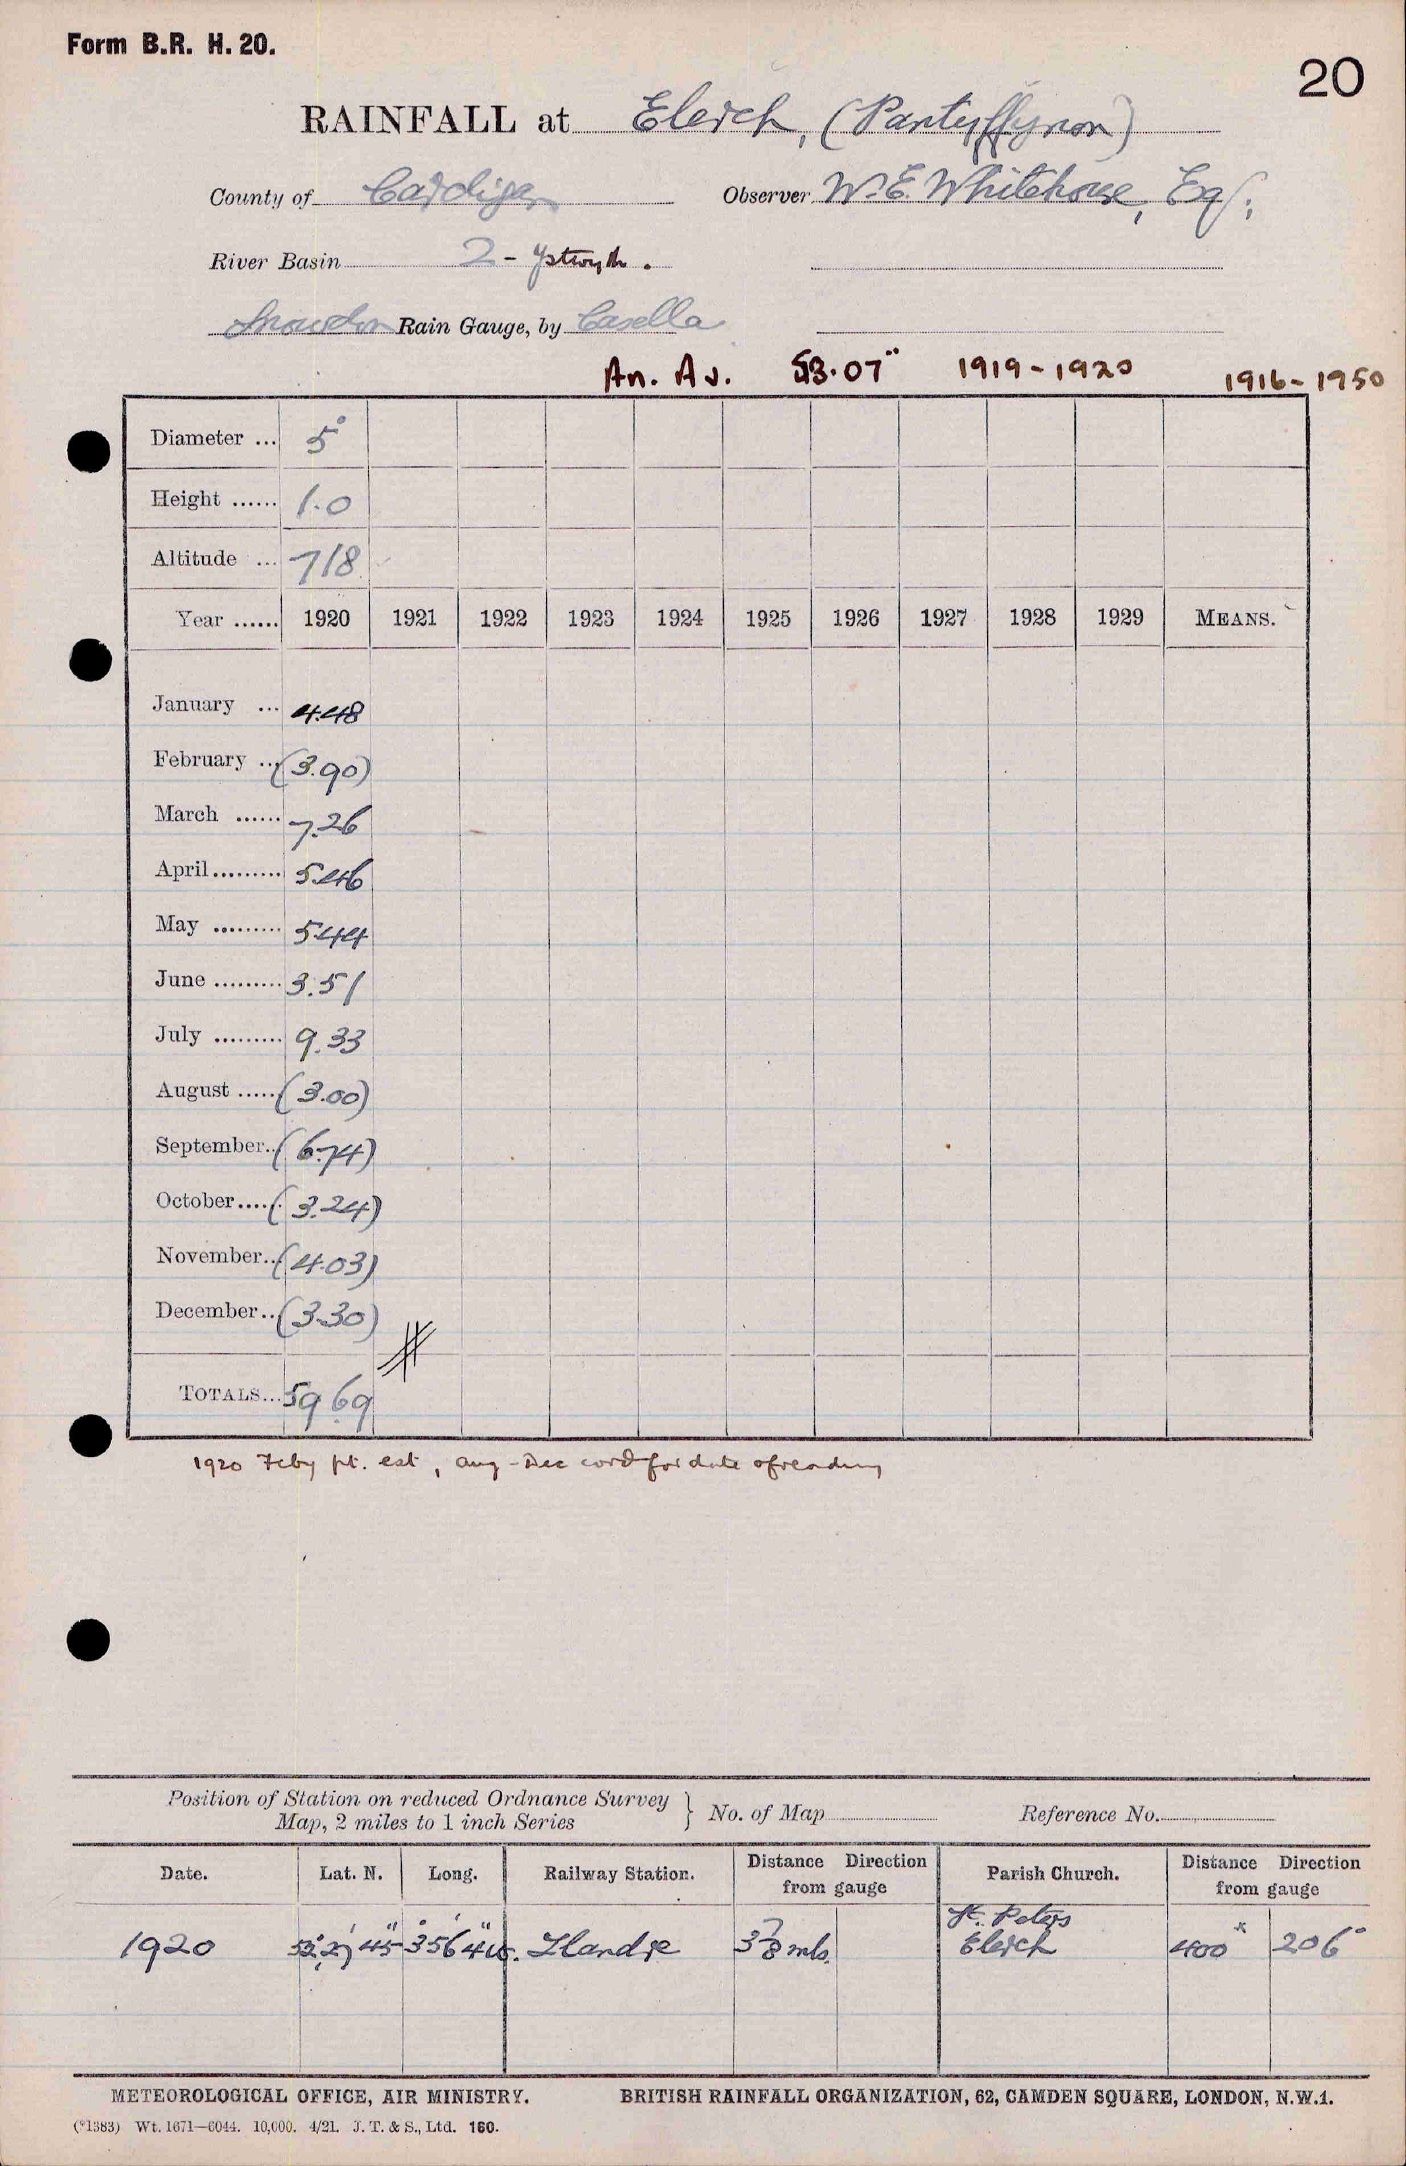 Form B.R. H. 20.
20
RAINFALL at Elerch, (Pantyffynon)
County of Cardigan Observer W. E. Whitehouse, Esq;
River Basin 2 - Ystwyth.
Snowdon Rain Gauge, by Casella
An. Av. 53.07" 1919-1920 1916-1950
Diameter ... 5"
Height ...... 1.0
Altitude ... 718
Year ...... 1920 1921 1922 1923 1924 1925 1926 1927 1928 1929 MEANS.
January ... 4.48
February ... (3.90)
March ...... 7.26
April ......... 5.46
May ......... 5.44
June ......... 3.51
July ......... 9.33
August ..... (3.00)
September.. (6.74)
October..... (3.24)
November.. (4.03)
December.. (3.30)
TOTALS... 59.69
1920 Feby pt. est, Aug - Dec corrd for date of reading
Position of Station on reduced Ordnance Survey
Map, 2 miles to 1 inch Series } No. of Map Reference No.
Date. Lat. N. Long. Railway Station. Distance Direction from gauge Parish Church. Distance Direction from gauge
St. Peters
1920 52° 27' 45" 3° 56' 4" W. Llandre 3 7/8 mls. Elerch 400 x 206°
METEOROLOGICAL OFFICE, AIR MINISTRY. BRITISH RAINFALL ORGANIZATION, 62, CAMDEN SQUARE, LONDON, N.W.1.
(*1383) Wt. 1671—6044. 10,000. 4/21. J. T. & S., Ltd. 160.